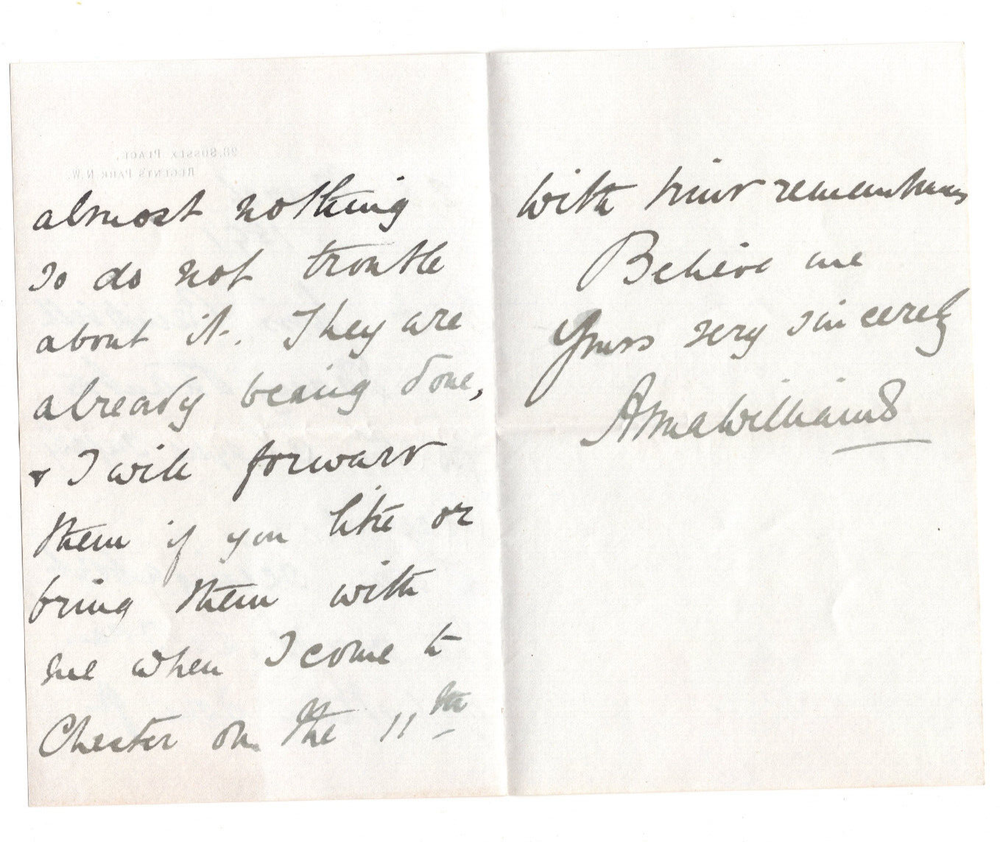 26, SUSSEX PLACE,
REGENT'S PARK N.W.
almost nothing
so do not trouble
about it. They are
already being done,
& I will forward
them if you like or
bring them with
me when I come to
Chester on the 11th
With kind remembrances
Believe me
Yours very sincerely
Anna Williams